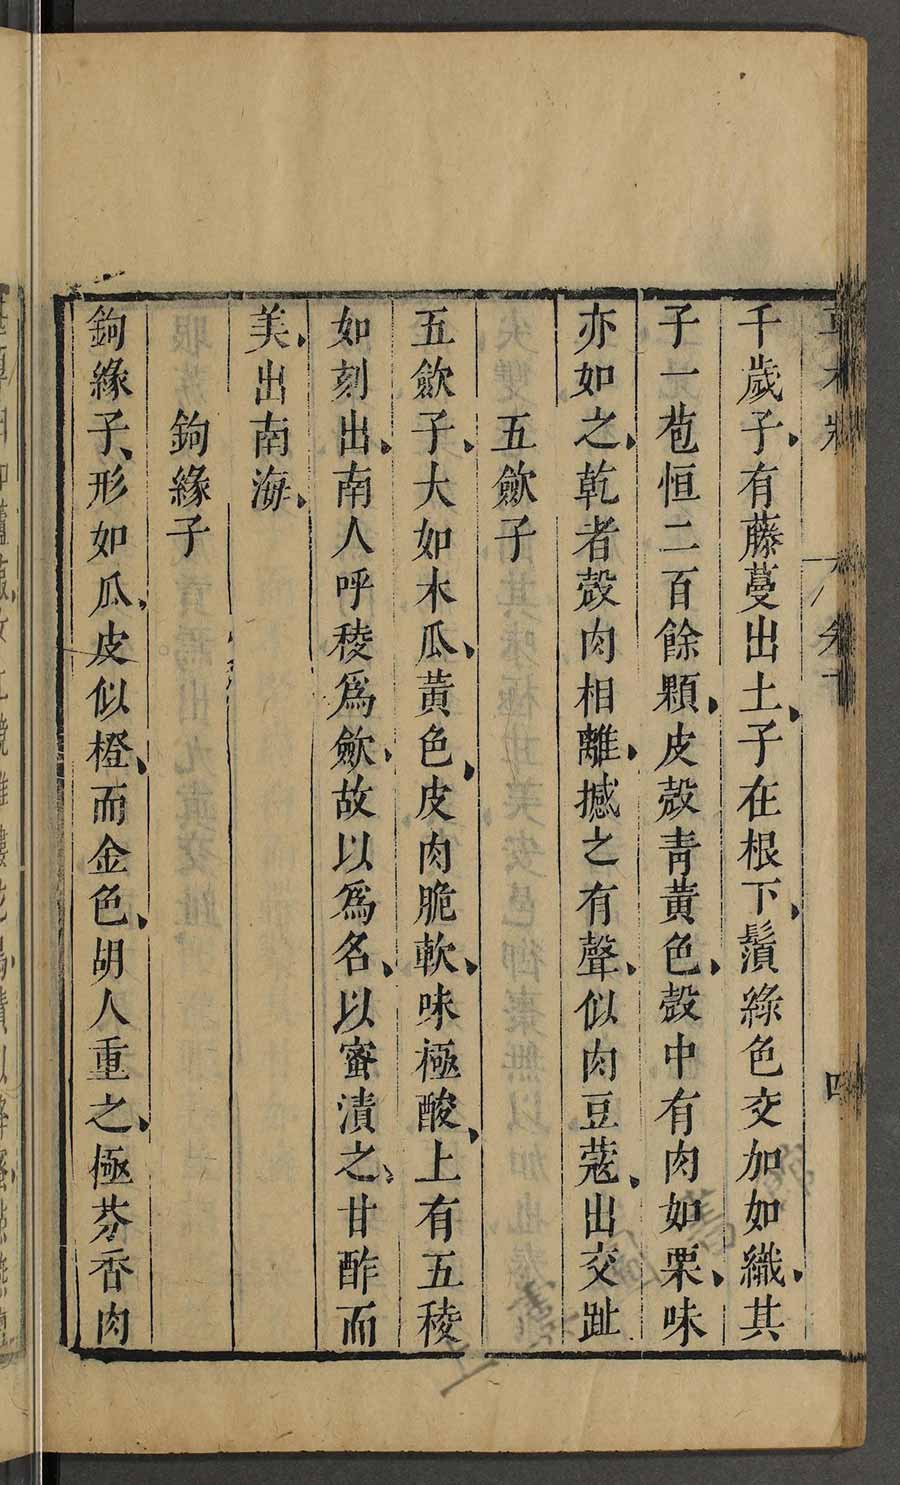 千歲子、有藤蔓出土、子在根下、鬚綠色交加如織、其
子一苞恒二百餘顆、皮殼青黃色、殼中有肉如栗、味
亦如之、乾者殼肉相離、撼之有聲、似肉豆蔻、出交趾
五歛子
五歛子、大如木瓜、黃色、皮肉脆軟、味極酸、上有五稜
如刻出、南人呼稜爲歛、故以爲名、以蜜漬之、甘酢而
美、出南海、
鉤緣子
鉤緣子、形如瓜、皮似橙、而金色、胡人重之、極芬香肉